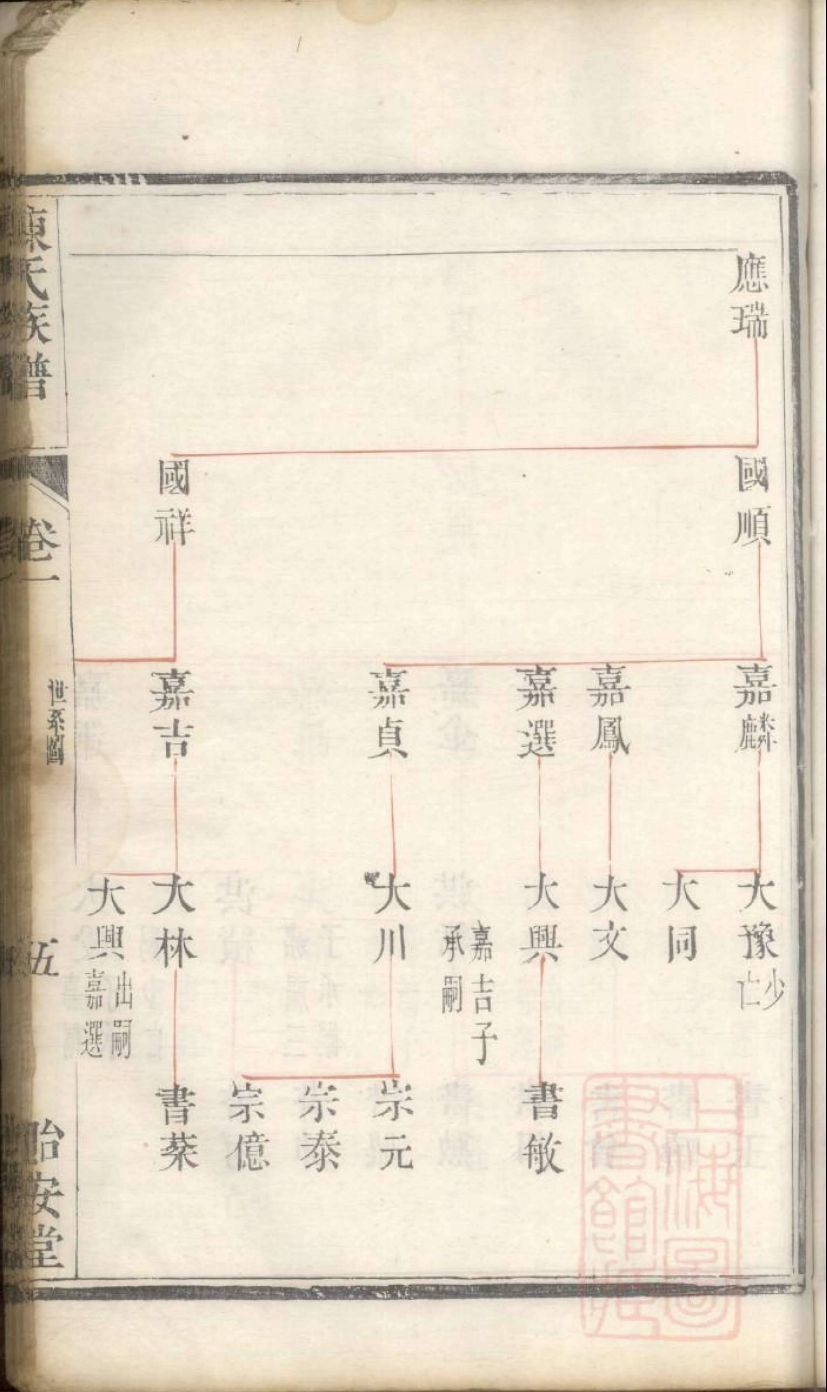 應瑞
國順
國祥
嘉麟
嘉鳳
嘉選
嘉貞
嘉吉
大豫
少亡
大同
大文
大興
嘉吉子
承嗣
大川
大林
大興
出嗣
嘉選
書敏
宗元
宗泰
宗億
書棻
陳氏族譜
卷一
世系圖
伍
怡安堂
上海圖
書館藏